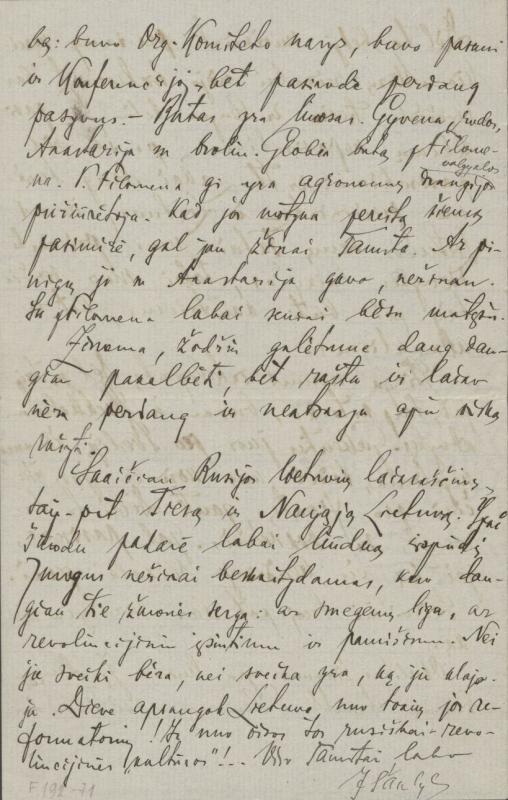 buvo Org. Komiteto narys, buvo
ir Konferencijoj, bet pasirodė perdaug
pasyvus. - Butas yra Gyvena, rodos,
Anastazija su broliu. Globia butą p. Filome-
na. P. Filomena gi yra agronomų draugijos
valgyklos
prižiūrėtoja. Kad jos motyna pereitą žiemą
pasimirė, gal jau žinai Tamsta. Ar pi-
nigų ji su Anastazija gavo, nežinau.
Su p. Filomena labai senai besu matęsis.
Žinoma, žodžiu galėtume daug dau-
giau pakalbėti, bet raštu ir laiko
nėra perdaug ir neatsargu apie viską
rašyti.
Skaičiau Rusijos lietuvių laikraščius,
taip-pat Tiesą ir Naująją Lietuvą. Ypač
labai liūdną įspūdį.
Žmogus nežinai beskaitydamas, kuo dau-
giau tie žmonės serga: ar smegenų liga, ar
revoliucijiniu ir pamišimu. Nei
jie sveiki bėra, nei sveika yra, ką jie
ja. Dieve apsaugok Lietuvą nuo tokių jos re-
formatorių! Ir nuo visos tos rusiškai-revo-
liucijinės „kultūros"!.. Viso Tamstai labo
F 192-71